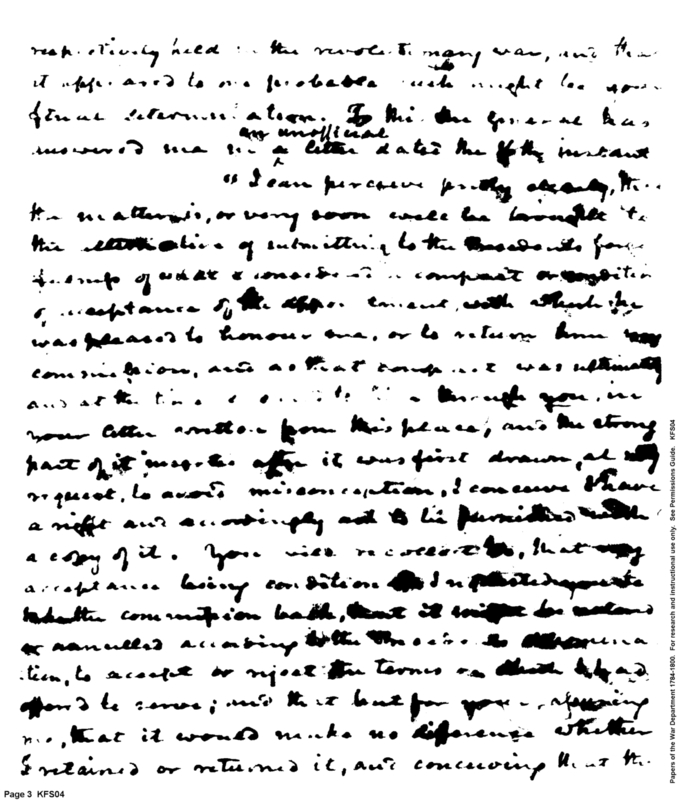 respectively held in the revolutionary war, and that
it appeared to me probable such might be your
final determination. To this the General has
an unofficial
answered me in a letter dated the instant
"I can perceive pretty clearly, that
the matter is, or very soon will be brought to
the alternative of submitting to the Presidents forge
fulness of what I considered a compact or condition
of acceptance of the appointment, with which he
was pleased to honour me, or to return him my
commission, and as that compact was ultimately
and at the time communicated to him through you, in
your letter written from this place, and the strong
part of it inserted after it was first drawn, at my
request, to avoid misconception, I conceive I have
a right and accordingly ask to be furnished with
a copy of it. You will recollect too, that my
acceptance being conditional I requested you to
take the commission back, that it might be restored
or cancelled according to the Presidents determina
tion, to accept or reject the terms on which I had
offered to serve; and that but for your assuring
me, that it would make no difference whether
I retained or returned it, and conceiving that the
Page 3 KFS04
Papers of the War Department 1784-1800. For research and instructional use only. See Permissions Guide. KFS04